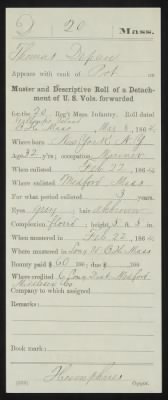 D 20 Mass.
Thomas
Appears with rank of Pvt on
Muster and Descriptive Roll of a Detach-
ment of U. S. Vols. forwarded
for the 20 Reg't Mass. Infantry. Roll dated
Mass, 186
Where born New York N.Y.
Age 32 y'rs; occupation Mariner
When enlisted Feb 22, 186
Where enlisted Medford Mass
For what period enlisted 3 years.
Eyes Grey; hair
Complexion Florid; height 5 ft. in.
When mustered in Feb 22, 186
Where mustered in Mass
Bounty paid $ 60 100; due $ 100
Where credited 6 Cong Dist Medford
Middlesex Co
Company to which assigned
Remarks:
Book mark:
Humphries
Copyist.